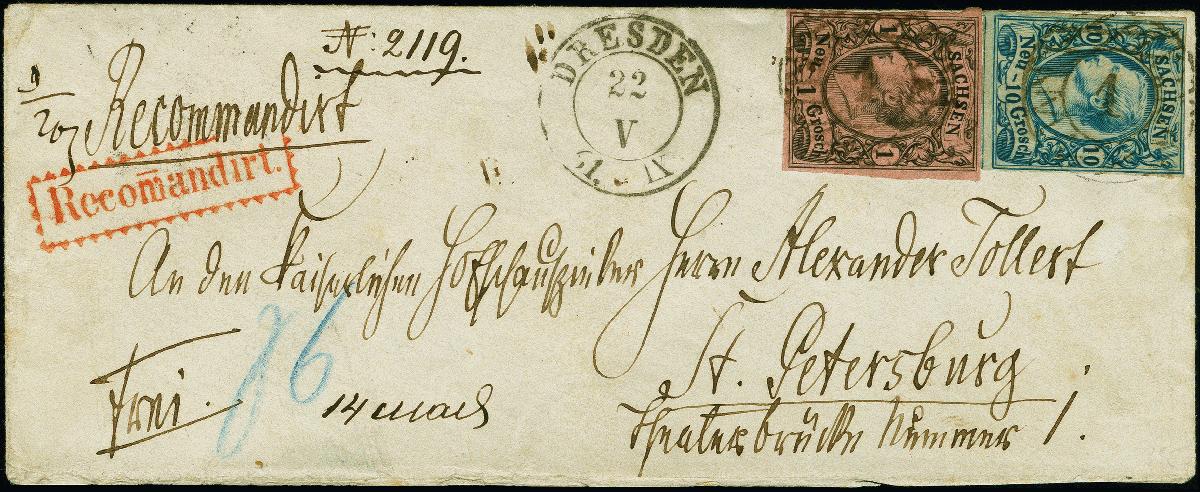 № 2119.
Recommandirt
Recom̅andirt.
DRESDEN
22
V
SACHSEN
1
Neu - 1 Grosch
1
SACHSEN
10
Neu - 10 Grosch
10
An den Kaiserlichen Hofschauspieler Herrn Alexander Tollert
St. Petersburg
Theaterbrücke Nummer 1.
Frei.
14 мая